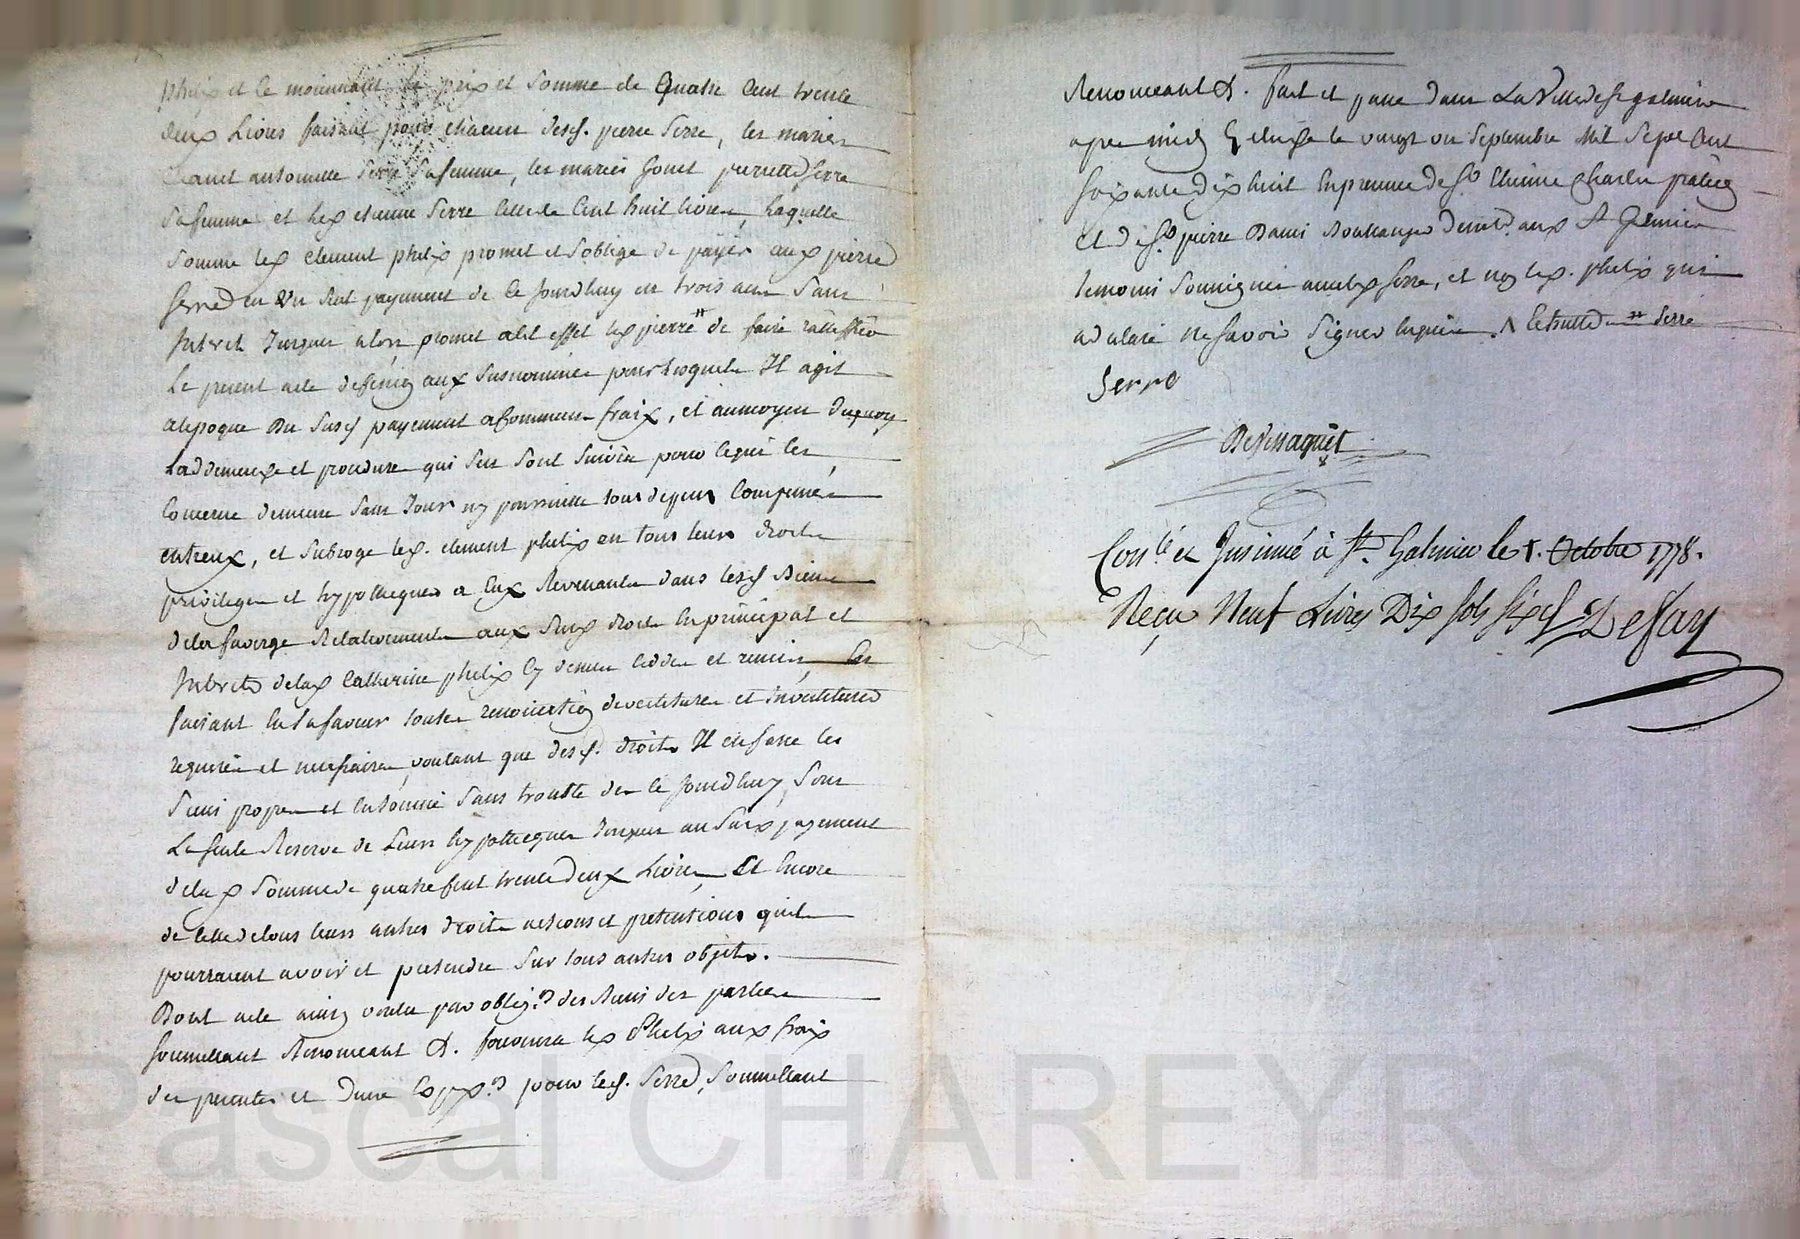 phelix et ce moiennant le prix et Somme de Quatre Cent trente
deux Livres faisant pour chacun desd. pierre Serre, les maries
antoinette Serre Sa femme, les mariés Gonet pierrette Serre
Sa femme et led etienne Serre Celle de Cent huit livres, Laquelle
Somme led Clement phelix promet et S'oblige de payer aux pierre
Serre en Un Seul payement de Ce Jourdhuy en trois ans Sans
Interet Jusques alors, promet a cet effet led pierre de faire rattiffier
Le present acte aux Susnommés pour Lesquels Il agit
a lepoque Du Susd payement a Communs fraix, et au moyen Duquoy
La demande et procedure qui Sen Sont Suivies pour ce qui les
Concerne demeure Sans Jour ny poursuitte tous depens Compensés
entreux, et Subroge led. Clement phelix en tous leurs droits
privileges et hypotheques a Eux Revenants dans lesd Biens
dela faverge Relativement aux Susd droits En principal et
Interets delad Catherine phelix Cy dessus Cedés et remis, Les
faisant En Sa faveur toutes renonciation devestitures et investitures
requises et necessaires, voulant que desd. droits Il en fasse les
Siens propres et En Jouisse Sans trouble des Ce Jourdhuy, Sous
La Seule Reserve de Leurs hypotheques Jusques au Susd payement
delad Somme de quatre Cent trente deux Livres, Et Encore
de Celle de tous leurs autres droits actions et pretentions quils
pourraient avoir et pretendre Sur tous autres objets.
Dont acte ainsy voulu par oblig.on des Biens des parties
Soumettant Renonceant &. fournira led Phelix aux fraix
des presentes et Dune Exp.on pour led. Serre, Soumettant
Renonceant &. fait et passé dans La Ville de St galmier
apres midy Etude le vingt un Septembre Mil Sept Cent
Soixante Dix huit En presence de Sr Etienne Charles praticien
Et de Sr pierre Boulanger demt. aud St Galmier
temoins Soussignés avec led Serre, et non led. phelix qui
a declaré ne Savoir Signer Enquis. Serre
Serre
Con.lé et Insinué à St. Galmier le 1. Octobre 1778.
Reçu Neuf Livres Dix Sols Six d Defay
Pascal CHAREYRON